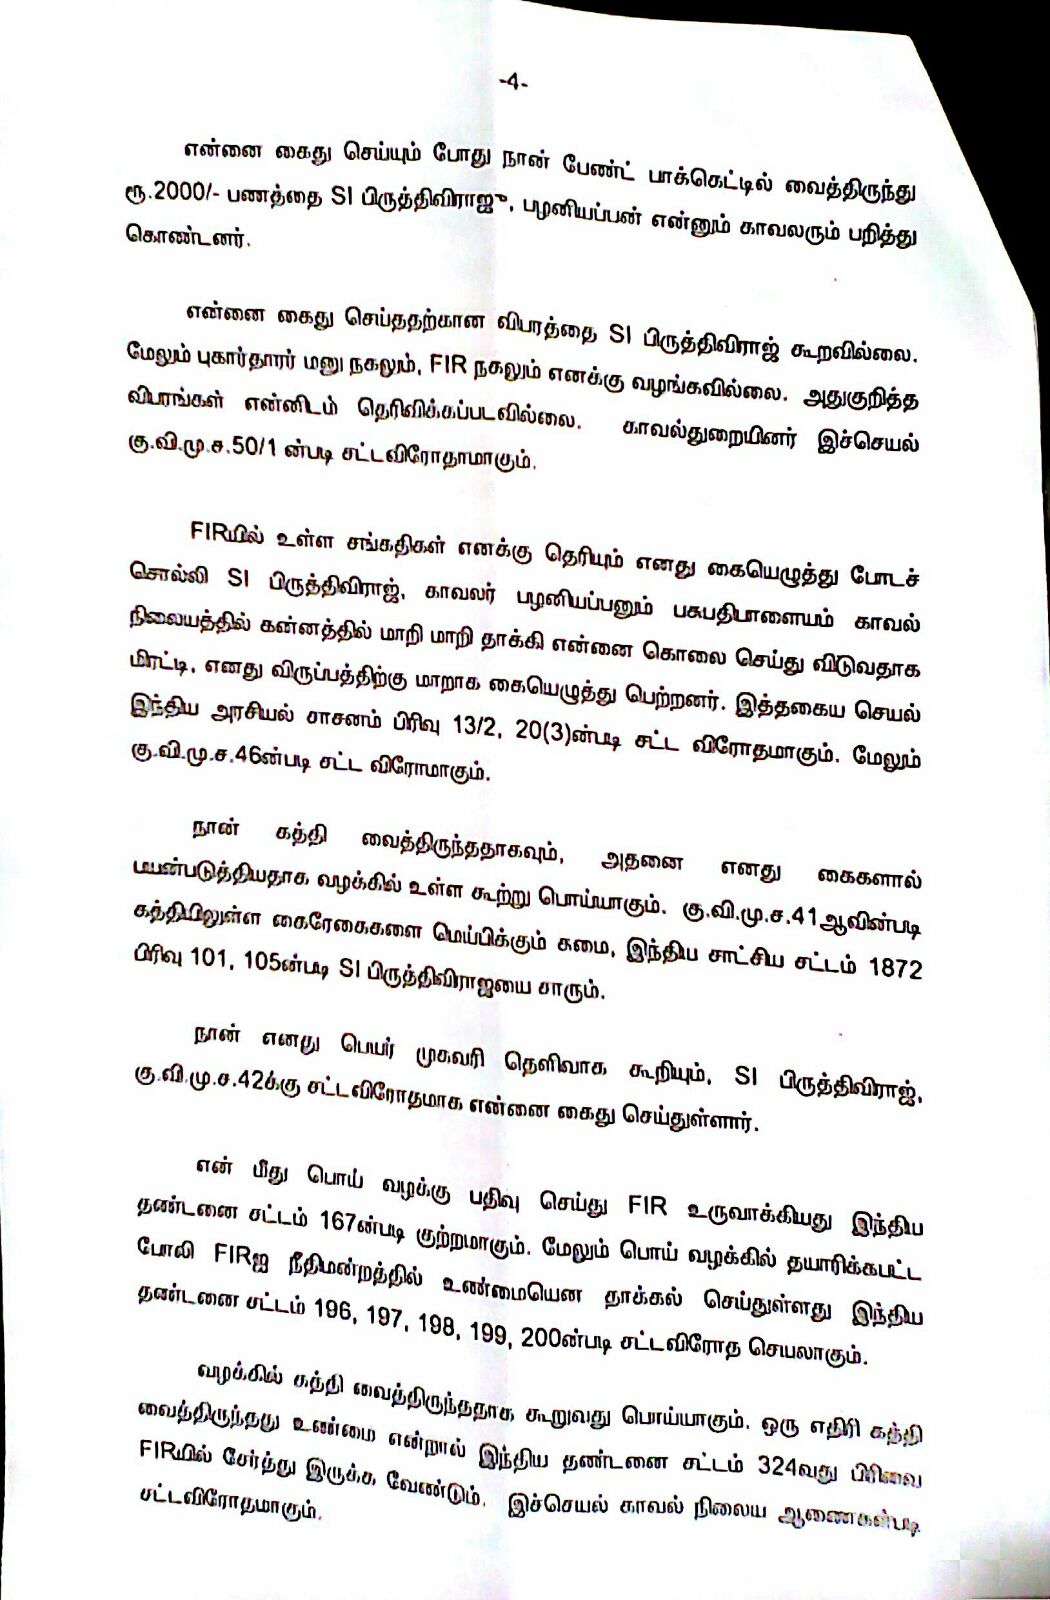 -4-
என்னை கைது செய்யும் போது நான் பேண்ட் பாக்கெட்டில் வைத்திருந்து
ரூ.2000/- பணத்தை SI பிருத்திவிராஜு, பழனியப்பன் என்னும் காவலரும் பறித்து
கொண்டனர்.
என்னை கைது செய்ததற்கான விபரத்தை SI பிருத்திவிராஜ் கூறவில்லை.
மேலும் புகார்தாரர் மனு நகலும், FIR நகலும் எனக்கு வழங்கவில்லை. அதுகுறித்த
விபரங்கள் என்னிடம் தெரிவிக்கப்படவில்லை. காவல்துறையினர் இச்செயல்
கு.வி.மு.ச.50/1 ன்படி சட்டவிரோதாமாகும்.
FIRயில் உள்ள சங்கதிகள் எனக்கு தெரியும் எனது கையெழுத்து போடச்
சொல்லி SI பிருத்திவிராஜ், காவலர் பழனியப்பனும் பசுபதிபாளையம் காவல்
நிலையத்தில் கன்னத்தில் மாறி மாறி தாக்கி என்னை கொலை செய்து விடுவதாக
மிரட்டி, எனது விருப்பத்திற்கு மாறாக கையெழுத்து பெற்றனர். இத்தகைய செயல்
இந்திய அரசியல் சாசனம் பிரிவு 13/2, 20(3)ன்படி சட்ட விரோதமாகும். மேலும்
கு.வி.மு.ச.46ன்படி சட்ட விரோமாகும்.
நான் கத்தி வைத்திருந்ததாகவும், அதனை எனது கைகளால்
பயன்படுத்தியதாக வழக்கில் உள்ள கூற்று பொய்யாகும். கு.வி.மு.ச.41ஆவின்படி
கத்தியிலுள்ள கைரேகைகளை மெய்பிக்கும் சுமை, இந்திய சாட்சிய சட்டம் 1872
பிரிவு 101, 105ன்படி SI பிருத்திவிராஜயை சாரும்.
நான் எனது பெயர் முகவரி தெளிவாக கூறியும், SI பிருத்திவிராஜ்,
கு.வி.மு.ச.42க்கு சட்டவிரோதமாக என்னை கைது செய்துள்ளார்.
என் மீது பொய் வழக்கு பதிவு செய்து FIR உருவாக்கியது இந்திய
தண்டனை சட்டம் 167ன்படி குற்றமாகும். மேலும் பொய் வழக்கில் தயாரிக்கபட்ட
போலி FIRஐ நீதிமன்றத்தில் உண்மையென தாக்கல் செய்துள்ளது இந்திய
தண்டனை சட்டம் 196, 197, 198, 199, 200ன்படி சட்டவிரோத செயலாகும்.
வழக்கில் கத்தி வைத்திருந்ததாக கூறுவது பொய்யாகும். ஒரு எதிரி கத்தி
வைத்திருந்தது உண்மை என்றால் இந்திய தண்டனை சட்டம் 324வது பிரிவை
FIRயில் சேர்த்து இருக்க வேண்டும். இச்செயல் காவல் நிலைய ஆணைகள்படி
சட்டவிரோதமாகும்.